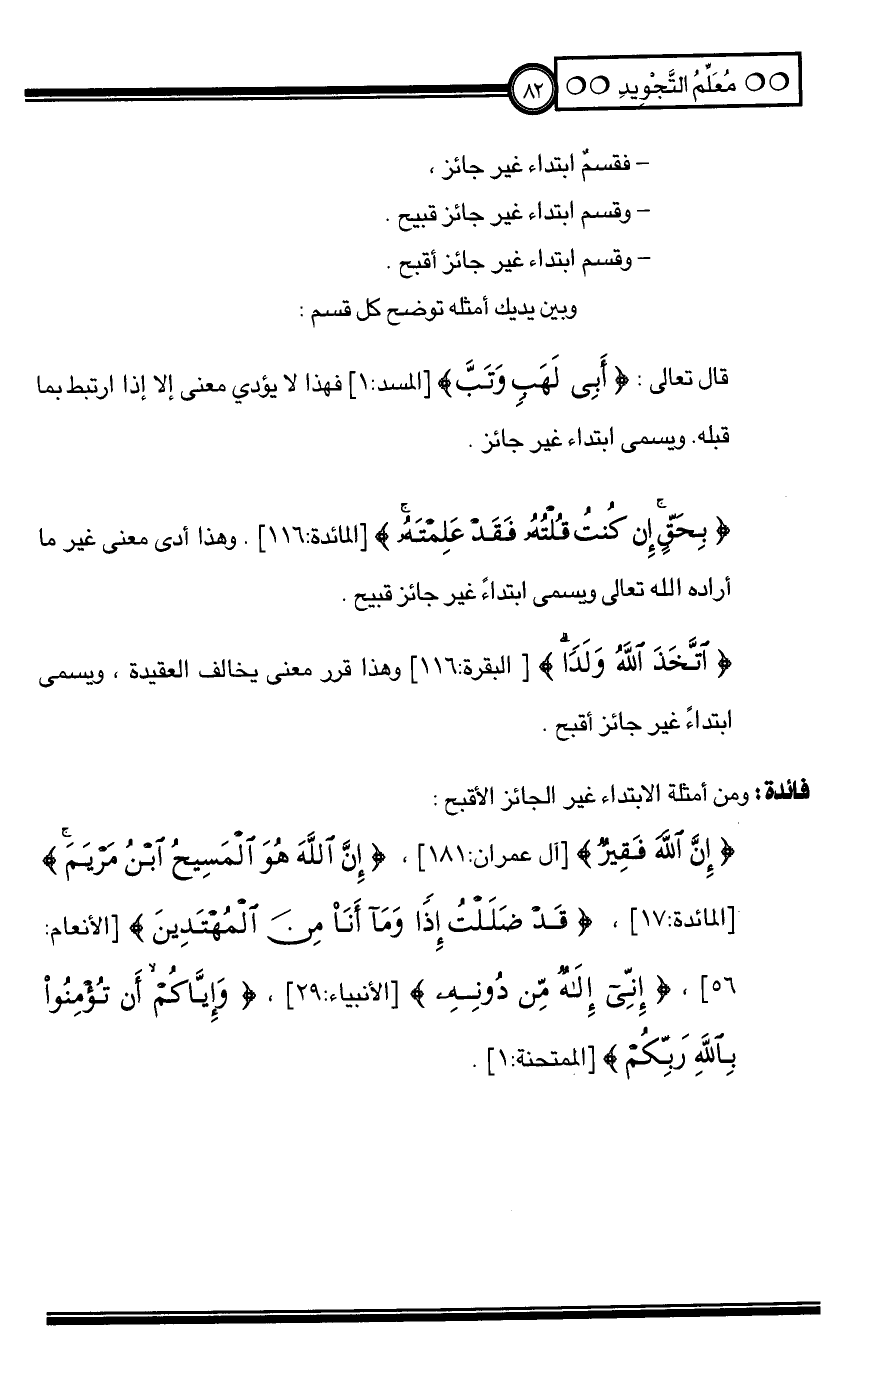 مُعَلِّمُ التَّجْوِيدِ
٨٢
– فقسمٌ ابتداء غير جائز ،
– وقسم ابتداء غير جائز قبيح .
– وقسم ابتداء غير جائز أقبح .
وبين يديك أمثله توضح كل قسم :
قال تعالى : ﴿ أَبِى لَهَبٍ وَتَبَّ ﴾ [المسد:١] فهذا لا يؤدي معنى إلا إذا ارتبط بما
قبله. ويسمى ابتداء غير جائز .
﴿ بِحَقٍّۚ إِن كُنتُ قُلْتُهُۥ فَقَدْ عَلِمْتَهُۥۚ ﴾ [المائدة:١١٦] . وهذا أدى معنى غير ما
أراده الله تعالى ويسمى ابتداءً غير جائز قبيح .
﴿ ٱتَّخَذَ ٱللَّهُ وَلَدًاۗ ﴾ [ البقرة:١١٦] وهذا قرر معنى يخالف العقيدة ، ويسمى
ابتداءً غير جائز أقبح .
فائدة: ومن أمثلة الابتداء غير الجائز الأقبح :
﴿ إِنَّ ٱللَّهَ فَقِيرٌ ﴾ [آل عمران:١٨١] ، ﴿ إِنَّ ٱللَّهَ هُوَ ٱلْمَسِيحُ ٱبْنُ مَرْيَمَۚ ﴾
[المائدة:١٧] ، ﴿ قَدْ ضَلَلْتُ إِذًا وَمَآ أَنَا۠ مِنَ ٱلْمُهْتَدِينَ ﴾ [الأنعام:
٥٦] ، ﴿ إِنِّىٓ إِلَٰهٌ مِّن دُونِهِۦ ﴾ [الأنبياء:٢٩] ، ﴿ وَإِيَّاكُمْۙ أَن تُؤْمِنُوا۟
بِٱللَّهِ رَبِّكُمْ ﴾ [الممتحنة:١] .